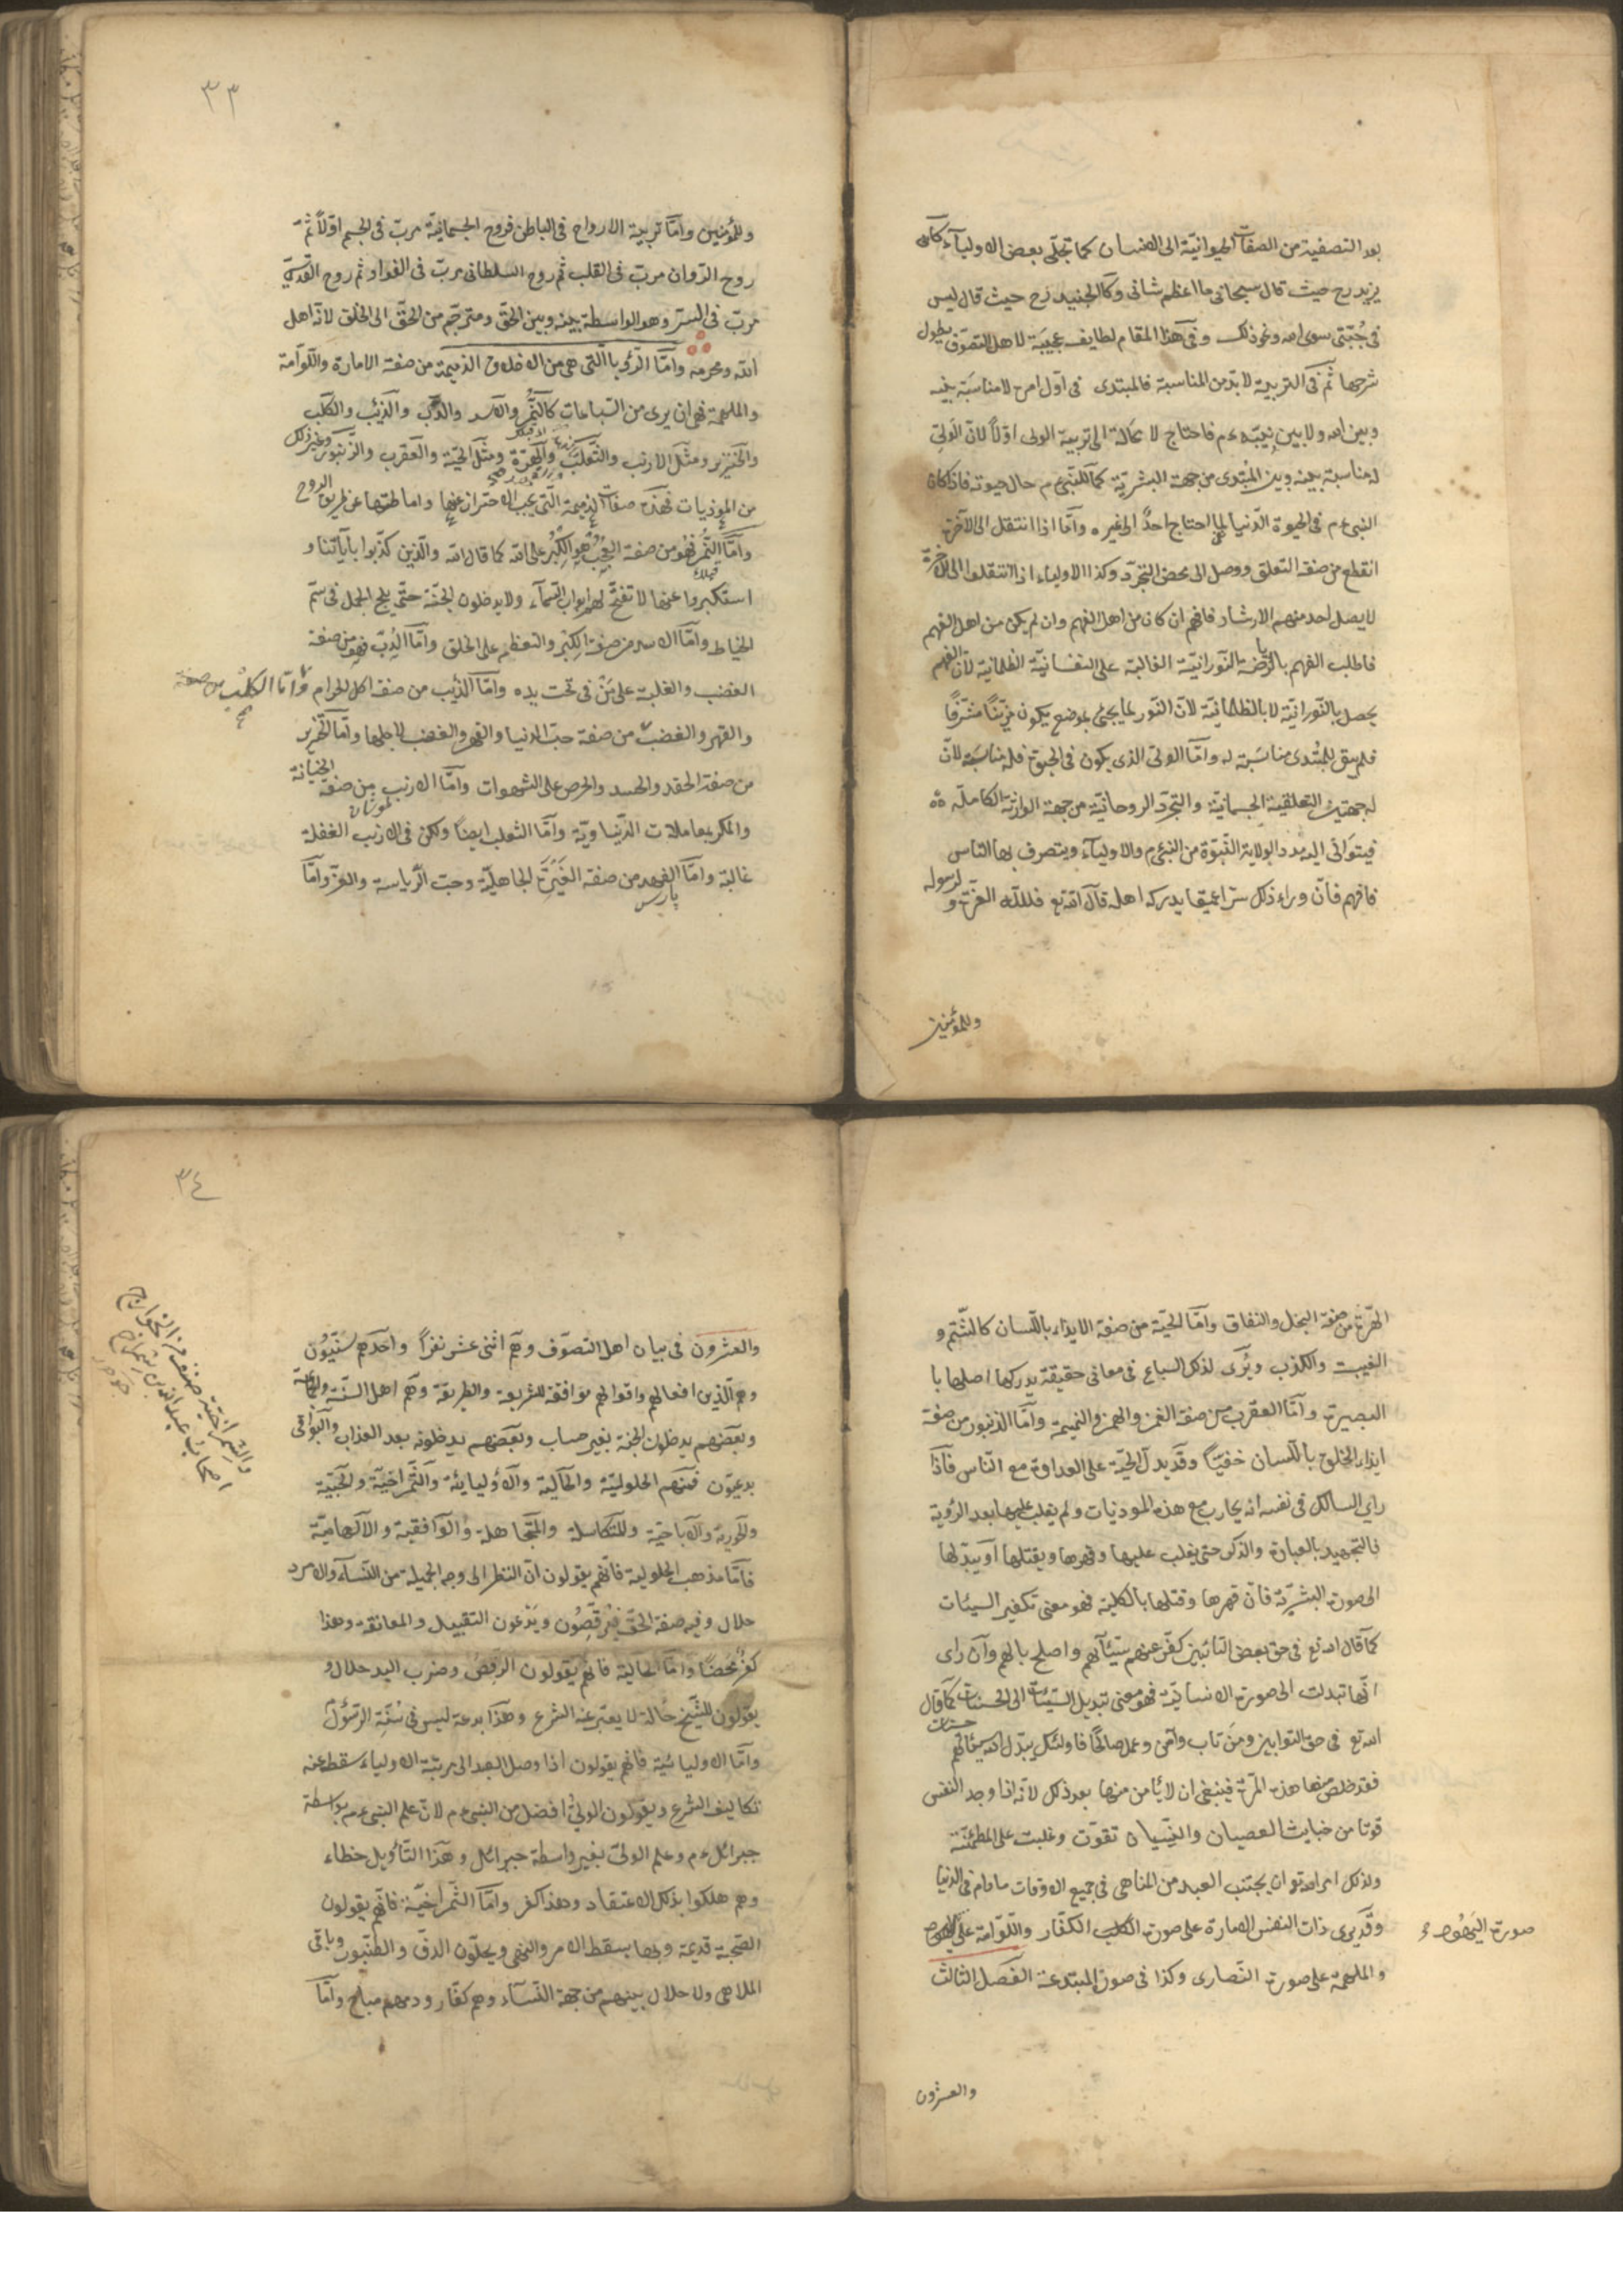 بعد التصفية من الصفات الحيوانيّة الى الانسان كما تجلّى بعض الاوليآء كابى
يزيد رح حيث قال سبحانى ما اعظم شانى وكالجنيد رح حيث قال ليس
فى جُبّتى سوى الله ونحو ذلك وفى هذا المقام لطايف عجيبَة لاهل التصوّف يطول
شرحها ثم فى التربية لا بدّ من المناسبة فالمبتدى فى اوّل امره لا مناسَبَة بينه
وبين الله ولا بين نبيّه ءم فاحتاج لا محَالة الى تربية الولى اوّلاً لانّ الوَلىّ
له مناسبة بينه وبين المبْتدى من جهت البشريّة كما للنّبى ءم حال حيوته فاذا كان
النبى ءم فى الحيوة الدّنيا لما احتاج احدٌ الى غيره وامّا اذا انتقل الى الآخرة
انقطع من صفة التعلق ووصل الى محض التجرّد وكذا الاولياء اذا انتقلوا الى الآخرة
لا يصل احد منهم الارشاد فافهم ان كان من اهل الفهم وان لم يكن من اهل الفهم
فاطلب الفهم بالرّياضة النّورانيّة الغالبة على النفسانيّة الظلمانية لانّ الفهم
يحصل بالنّورانيّة لا بالظلمانيّة لانّ النّور لما يجئ بموضع يكون مزيّناً مشرّفاً
فلم يبق للمبتدى مناسَبَة له وامّا الولى الذى يكون فى الحيوة فله مناسَبَة لانّ
له جهتين التعلقية الجسمانيّة والتجرّد الروحانيّة من جهة الوارثة الكاملة
فيتوَالى اليه مدد الولاية النّبوّة من النبى ءم والاوليآء ويتصرف بها النّاس
فافهم فانّ وراء ذلك سرّا عميقا يدركه اهله قال الله تع فللّه العزّة و لرسوله
وللمؤمنين
٣٣
وللمؤمنين وامّا تربية الارواح فى الباطن فروح الجسمانيّة مربّ فى الجسم اوّلاً ثمّ
روح الرّوان مربّ فى القلب ثم روح السلطانى مربّ فى الفؤاد ثم روح القدسىّ
مربّ فى السرّ وهو الواسطة بينه وبين الحقّ ومترجّم من الحقّ الى الخلق لانّه اهل
الله ومحرمه وامّا الرّؤيا الّتى هى من الاخلاق الذميمة من صفة الامارة واللّوّامة
والملهمة فهى ان يرى من السّباعات كالنّمر والاسد والدّب والذّئب والكلب
والخنزير ومثل الارنب والثّعلب والهِرّة ومثل الحيّة والعقرب والزّنبور وغير ذلك
من الموذيات فهذه صفات الذميمة الّتى يجب الاحتراز عنها واماطتها عن طريق الروح
وامّا النّمر فهُو من صفة العُجب والكِبْر على الله كما قال الله والّذين كذّبوا بآياتنا و
استكبروا عنها لا تفتّح لهم ابواب السّمآء ولا يدخلون الجنّة حتّى يلج الجمل فى سمّ
الخياط وامّا الاسد من صفة الكِبْر والتعظيم على الخلق وامّا الدُبّ فهو من صفة
الغضب والغلبة على مَنْ فى تحت يده وامّا الذّئب من صفة اكل الحرام وامّا الكلب من صفة
والقهر والغضب من صفة حبّ الدنيا والقهر والغضب لاجلها وامّا الخنزير
من صفة الحقد والحسد والحرص على الشهوات وامّا الارنب من صفة الخيانة
والمكر بمعاملات الدّنياويّة وامّا الثعلب ايضاً ولكن فى الارنب الغفلة
غالبة وامّا الفهد من صفة الغَيْرة الجاهليّة وحبّ الرّياسة والعزّ وامّا
پارس
الهّرة من صفة البخل والنفاق وامّا الحيّة من صفة الايذاء باللّسان كالشّتم و
الغيبت والكذب ويُرى لذلك السباع فى معانى حقيقة يدركها اصلها با
البصيرة وامّا العقرب من صفة الغمز والهمز والنميمة وامّا الذنبور من صفة
ايذاء الخلق باللّسان خفيّاً وقد يدلّ الحيّة على العداوة مع النّاس فاذا
راى السالك فى نفسه انه يحارب مع هذه الموذيات ولم يغلب عليها بعد الرّؤية
فالتجهيد بالعبادة والذكر حتى يغلب عليها وقهرها ويقتلها او يبدّلها
الى صورة البشريّة فانّ قهرها وقتلها بالكلية فهو معنى تكفير السيئات
كما قال الله تع فى حق بعض التائبين كفّر عنهم سيّئاتهم واصلح بالهم وان راى
انّها تبدلت الى صورة الانسانيّة فهو معنى تبديل السّيّئات الى الحسنات كما قال
الله تع فى حق التوابين ومَن تاب وآمن وعمل صالحًا فاولئك يبدّل الله سيئاتهم حسنات
فقد خلص منها هذه المرّة فينبغى ان لا يامن منها بعد ذلك لانّه اذا وجد النفس
قوتا من خبايث العصيان والنّسيان تقوّت وغلبت على المطمئنّة
ولذلك امر الله تع ان يجتنب العبد من المناهى فى جميع الاوقات ما دام فى الدّنيا
وقد يرى ذات النفس الامارة على صورة الكلب الكفّار واللّوّامة على
والملهمة على صورة النّصارى وكذا فى صورة المبتدعة الفصل الثالث
صورة اليَهُود
والعشرون
٣٤
والعشرون فى بيان اهل التصوّف وهم اثنى عشر نفراً واحدهم سُنّيّون
وهم الّذين افعالهم واقوالهم موافقة للشريعة والطريقة وهم اهل السنّة والجماعة
وبعضهم يدخلون الجنة بغير حساب وبعضهم يدخلونه بعد العذاب والبواقى
بدعيّون فمنهم الحلوليّة والحاليّة والاوليائيّة والشّمراخيّة والحُبّيّة
والحوريّة والاباحيّة والمتكاسلة والمتجاهلة والوافقية والالهاميّة
فامّا مذهب الحلولية فانّهم يقولون انّ النظر الى وجه الجميلة من النّسآء والامرد
حلال وفيه صفة الحقّ فيَرقصُون ويدّعون التقبيل والمعانقة وهذا
كفرٌ محضًا وامّا الحاليّة فانّهم يقولون الرقص وضرب اليد حلال و
يقولون للشّيخ حالة لا يعتبر عنه الشرع وهذا بدعة ليس فى سُنّة الرّسُول
وامّا الاوليائيّة فانّهم يقولون اذا وصل العبد الى مرتبة الاولياء سقط عنه
تكاليف الشرع ويقولون الولىّ افضل من النبى ءم لانّ علم النبى ءم بواسطة
جبرائل ءم وعلم الولىّ بغير واسطة جبرائل وهذا التّأويل خطاء
وهم هلكوا بذلك الاعتقاد وهذا كفر وامّا الشّمراخيّة فانّهم يقولون
الصّحبة قديمة وبها يسقط الامر والنهى ويحلّون الدفّ والطنبور وباقى
الملاهى ولا حلال بينهم من جهة النّسآء وهم كفّار ودمهم مباح وامّا
والشِمْراخيّة صنف من الخوارج
اصحاب عبد الله بن شمراخ
جوهرى